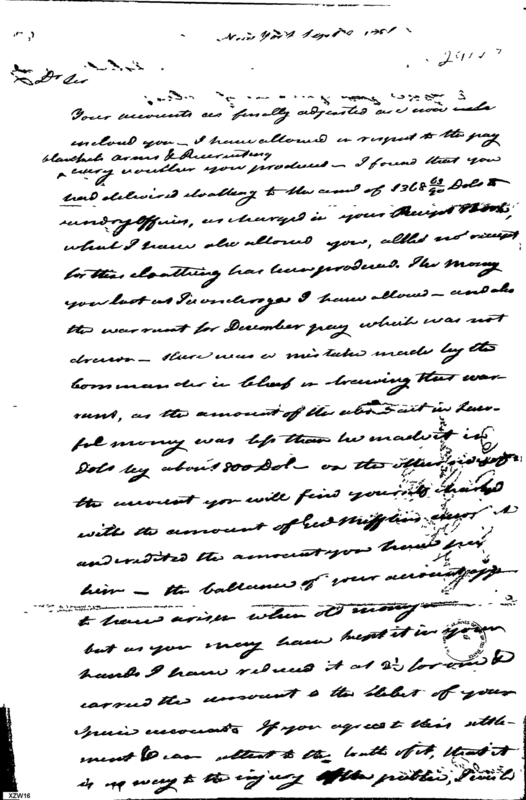 New York Sept
Dr Sir
Your accounts as finally adjusted are now
inclosed you – I have allowed in respect to the pay
blankets arms &
every voucher you produced – I found that you
had delivered cloathing to the amt of 1368 63/90 Dols to
sundry officers, as charged in your Receipt Book,
what I have also allowed you, altho no receipt
for this cloathing has been produced. The money
you lost at Ticonderoga I have allowed – and also
the warrant for December pay which was not
drawn – there was a mistake made by the
Commander in Chief in drawing this war-
rant, as the amount of the abstract in Law-
ful money was less than he made it in
Dols by about 800 Dol – on the other side of
the account you will find yourself charged
with the amount of Genl Mifflins
and credited the amount you have
him – the ballance of your account
to have arisen when old money
but as you may have kept it in your
hands I have reduced it at for one &
carried the amount to the debet of your
specie account. If you agree to this settle-
ment & can attest to the truth of it, that it
is no way to the injury of the public, I wish
XZW16